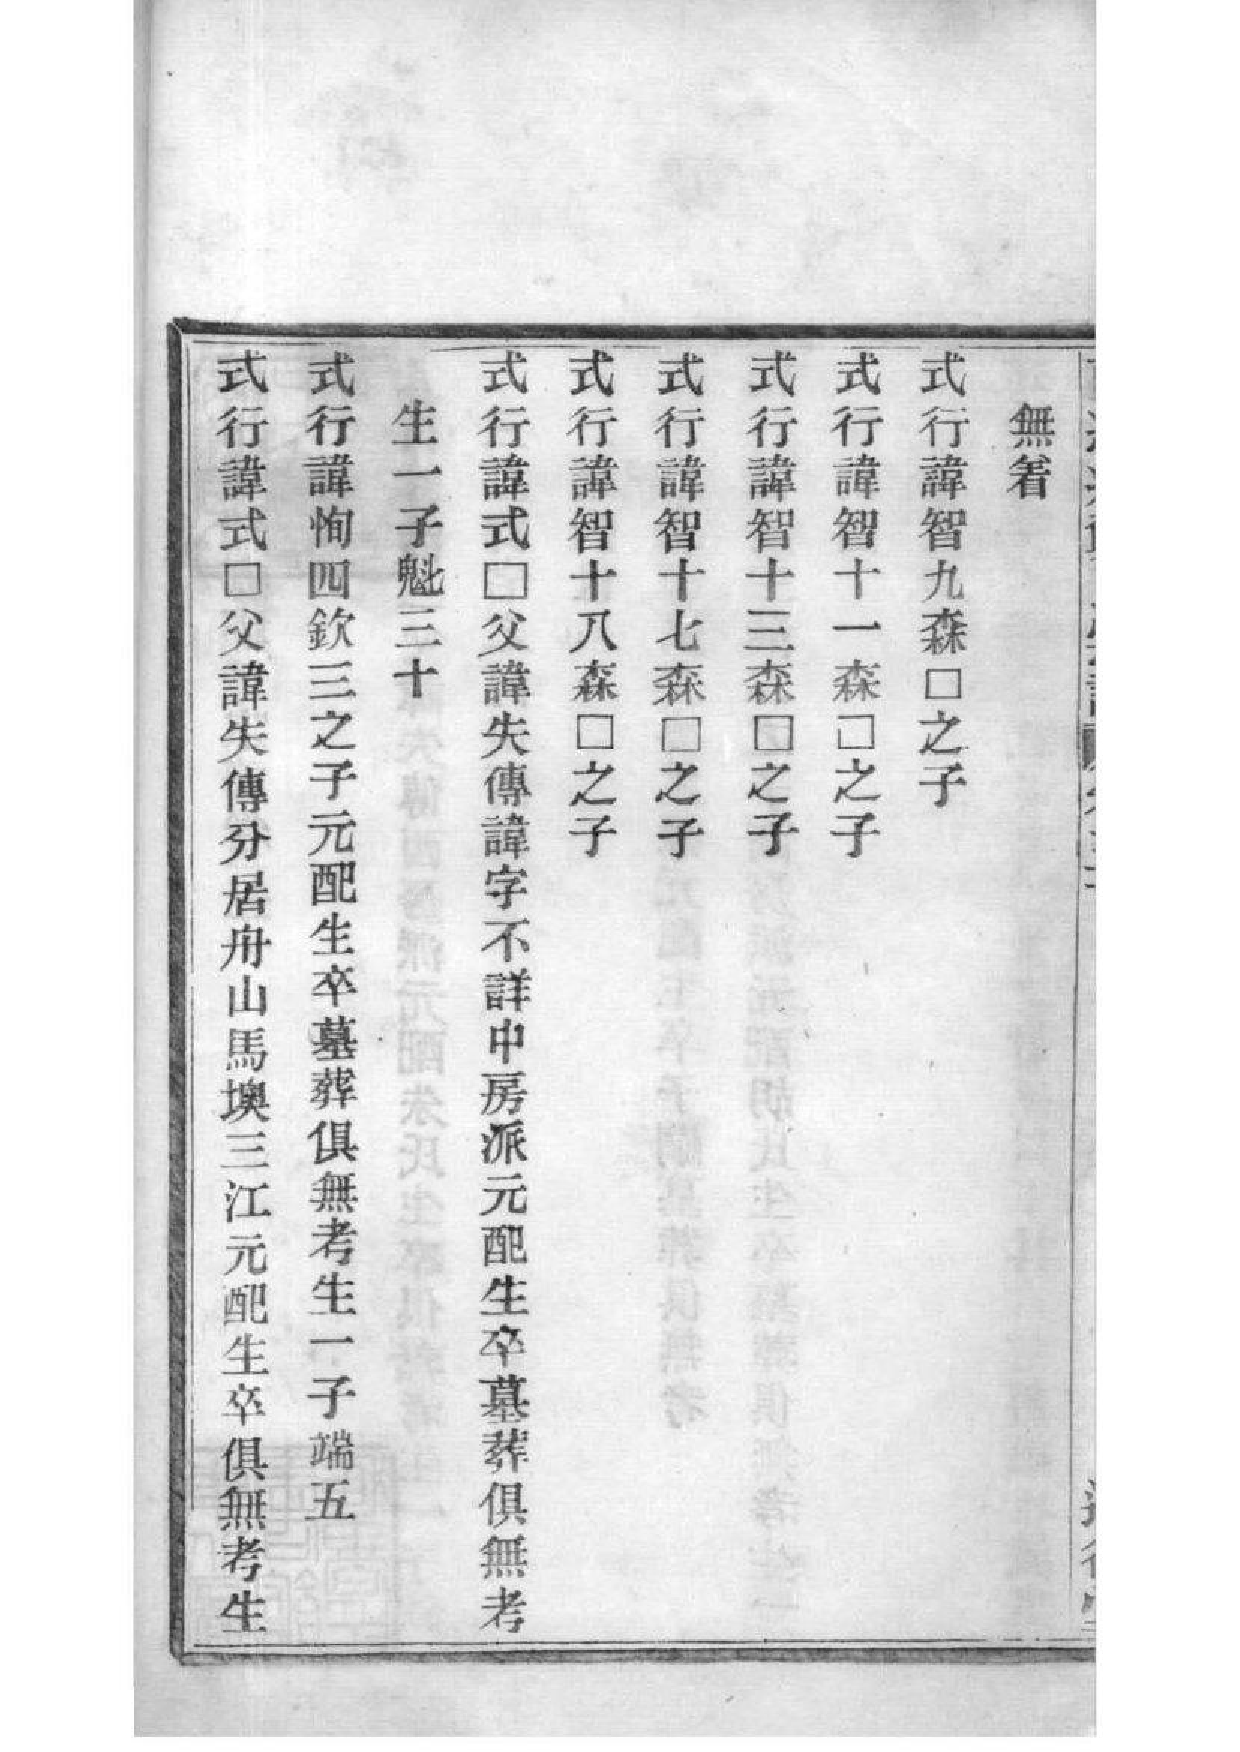 無着
式行諱智九森□之子
式行諱智十一森□之子
式行諱智十三森□之子
式行諱智十七森□之子
式行諱智十八森□之子
式行諱式□父諱失傳諱字不詳中房派元配生卒墓葬俱無考
生一子魁三十
式行諱恂四欽三之子元配生卒墓葬俱無考生一子端五
式行諱式□父諱失傳分居舟山馬墺三江元配生卒俱無考生